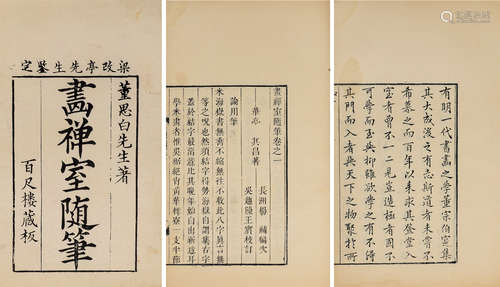 梁改亭先生鉴定
董思白先生著
畫禪室随筆
百尺樓藏板
畫禪室隨筆卷之一
華亭 其昌著
長洲楊 補編次
吳趨陸王賓校訂
論用筆
米海嶽書無垂不縮無往不收此八字真言無
等等之咒也然須結字得勢海嶽自謂集古字
蓋於結字最留意比其晚年始自出新意耳
學米書者惟吳琚絕肖黃華樗寮一支半節
有明一代書畫之學董宗伯寔集
其大成後之有志斯道者未嘗不
希慕之而百年以来求其登堂入
室者曾不一二見豈造極者固不
可學而至與抑雖欲學之有不得
其門而入者與天下之物聚於所